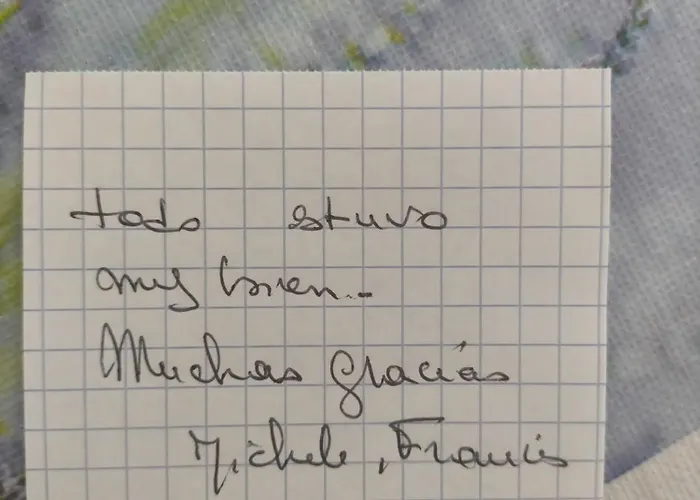 todo estuvo
muy bien..-
Muchas graciás
Michele, Francis